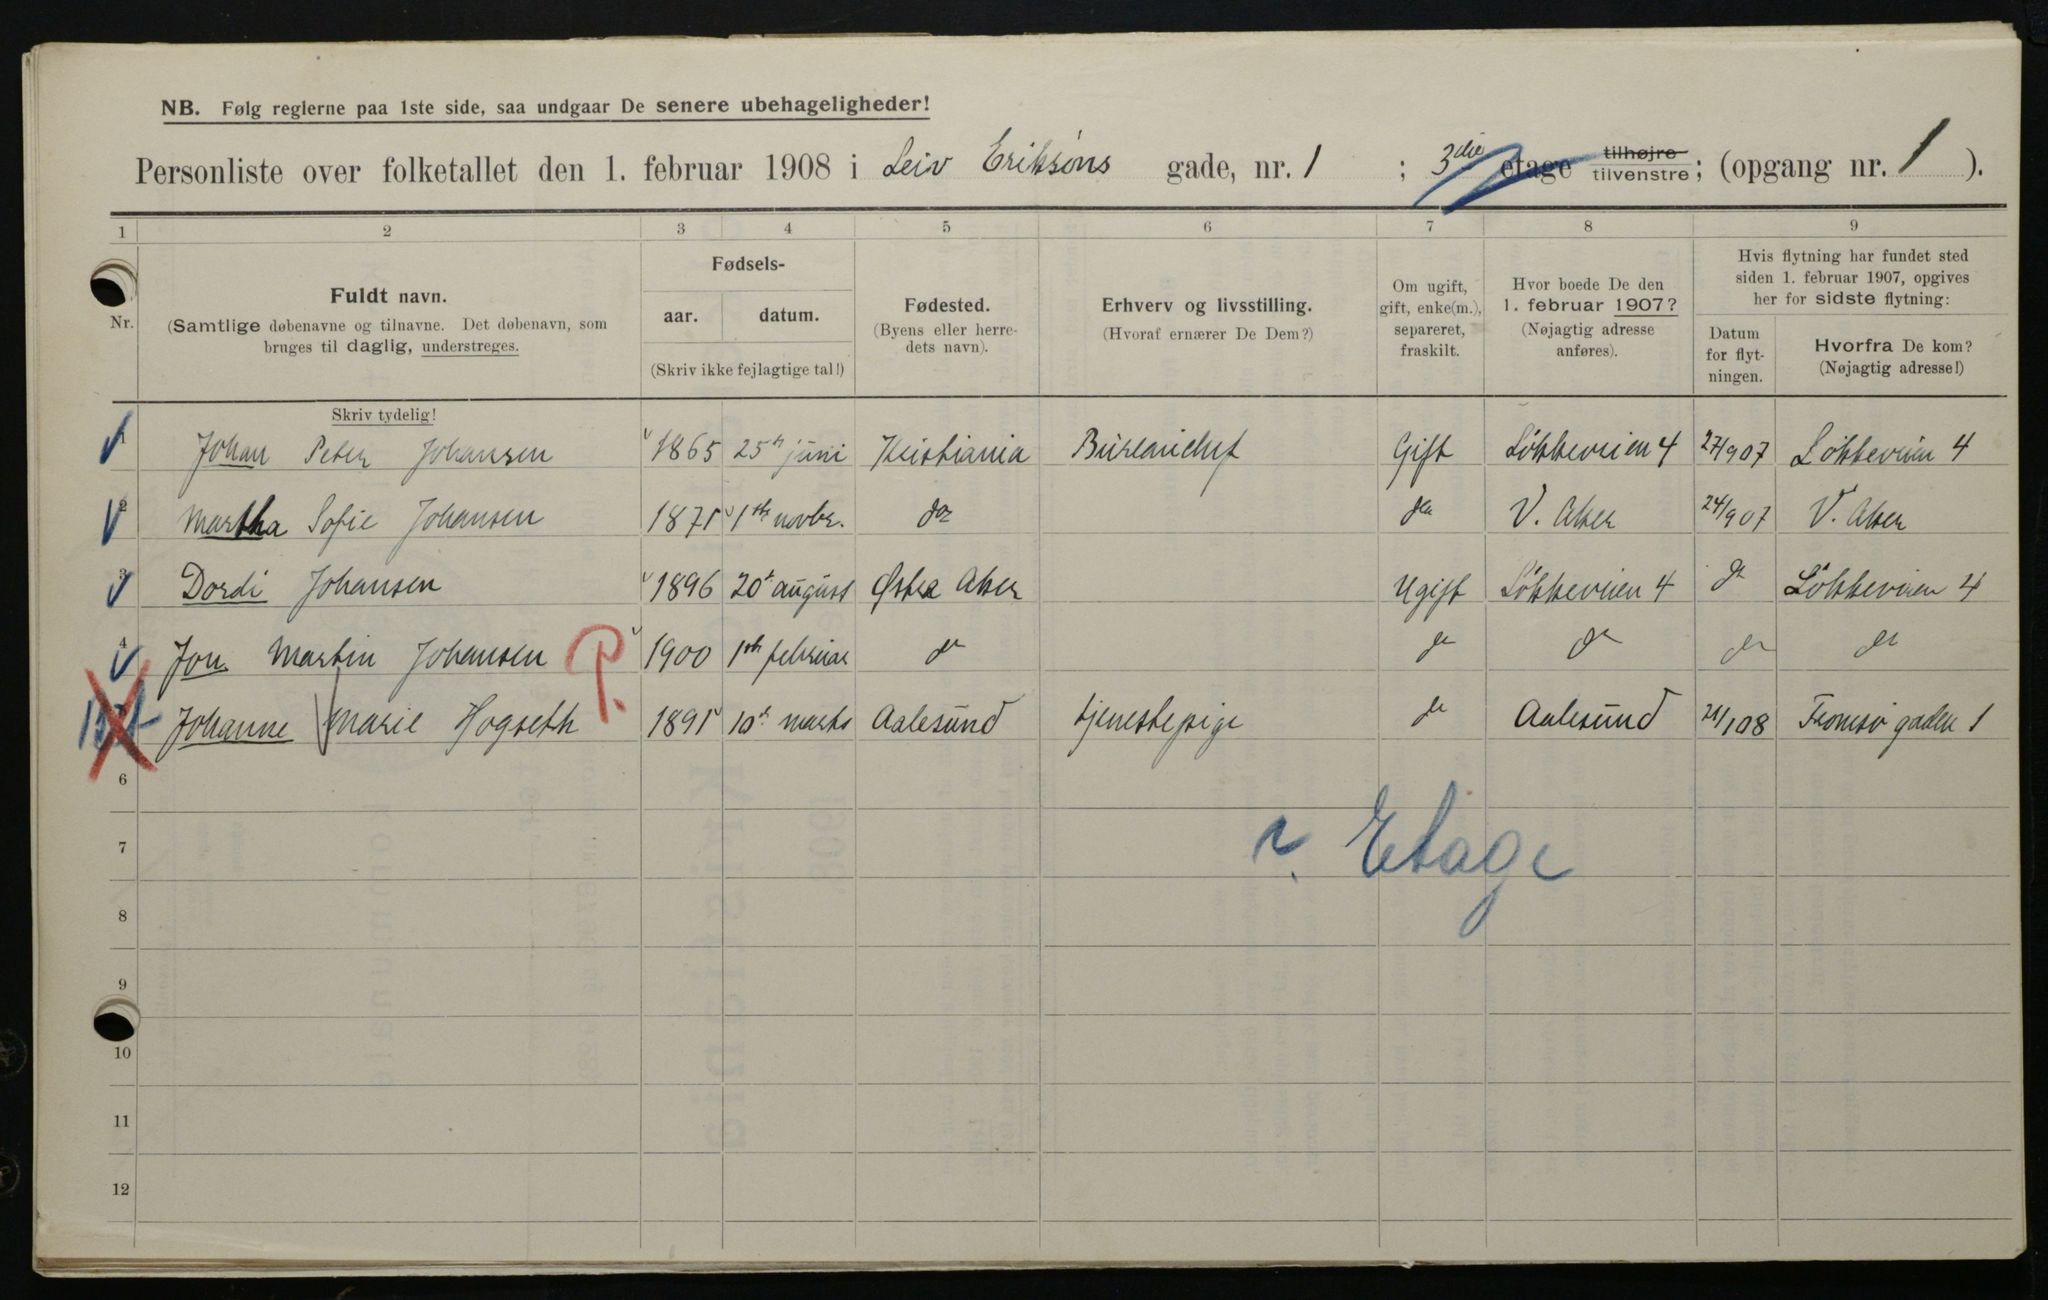 NB. Følg reglerne paa 1ste side, saa undgaar De senere ubehageligheder!
Personliste over folketallet den 1. februar 1908 i Leiv Eriksøns gade, nr. 1 ; 3die etage tilhøjre tilvenstre; (opgang nr. 1 ).
1 2 3 4 5 6 7 8 9
Nr.
Fuldt navn.
(Samtlige døbenavne og tilnavne. Det døbenavn, som
bruges til daglig, understreges.
Skriv tydelig!
Fødsels-
aar. datum.
(Skriv ikke fejlagtige tal!)
Fødested.
(Byens eller herre-
dets navn).
Erhverv og livsstilling.
(Hvoraf ernærer De Dem?)
Om ugift,
gift, enke(m.),
separeret,
fraskilt.
Hvor boede De den
1. februar 1907?
(Nøjagtig adresse
anføres).
Hvis flytning har fundet sted
siden 1. februar 1907, opgives
her for sidste flytning:
Datum
for flyt-
ningen.
Hvorfra De kom?
(Nøjagtig adresse!)
1 Johan Peter Johansen 1865 25de juni Kristiania Bureauchef Gift Løkkeveien 4 27/9 07 Løkkeveien 4
2 Martha Sofie Johansen 1871 1ste novbr. do do V. Aker 24/9 07 V. Aker
3 Dordi Johansen 1896 20de august Østre Aker Ugift Løkkeveien 4 do Løkkeveien 4
4 Jon Martin Johansen P. 1900 1ste februar do do do do do
Johanne Marie Hogseth 1891 10de marts Aalesund tjenestepige do Aalesund 21/1 08 Tromsø gaden 1
6
7
2. Etage
8
9
10
11
12